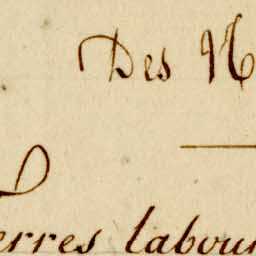 Des N
erres labour